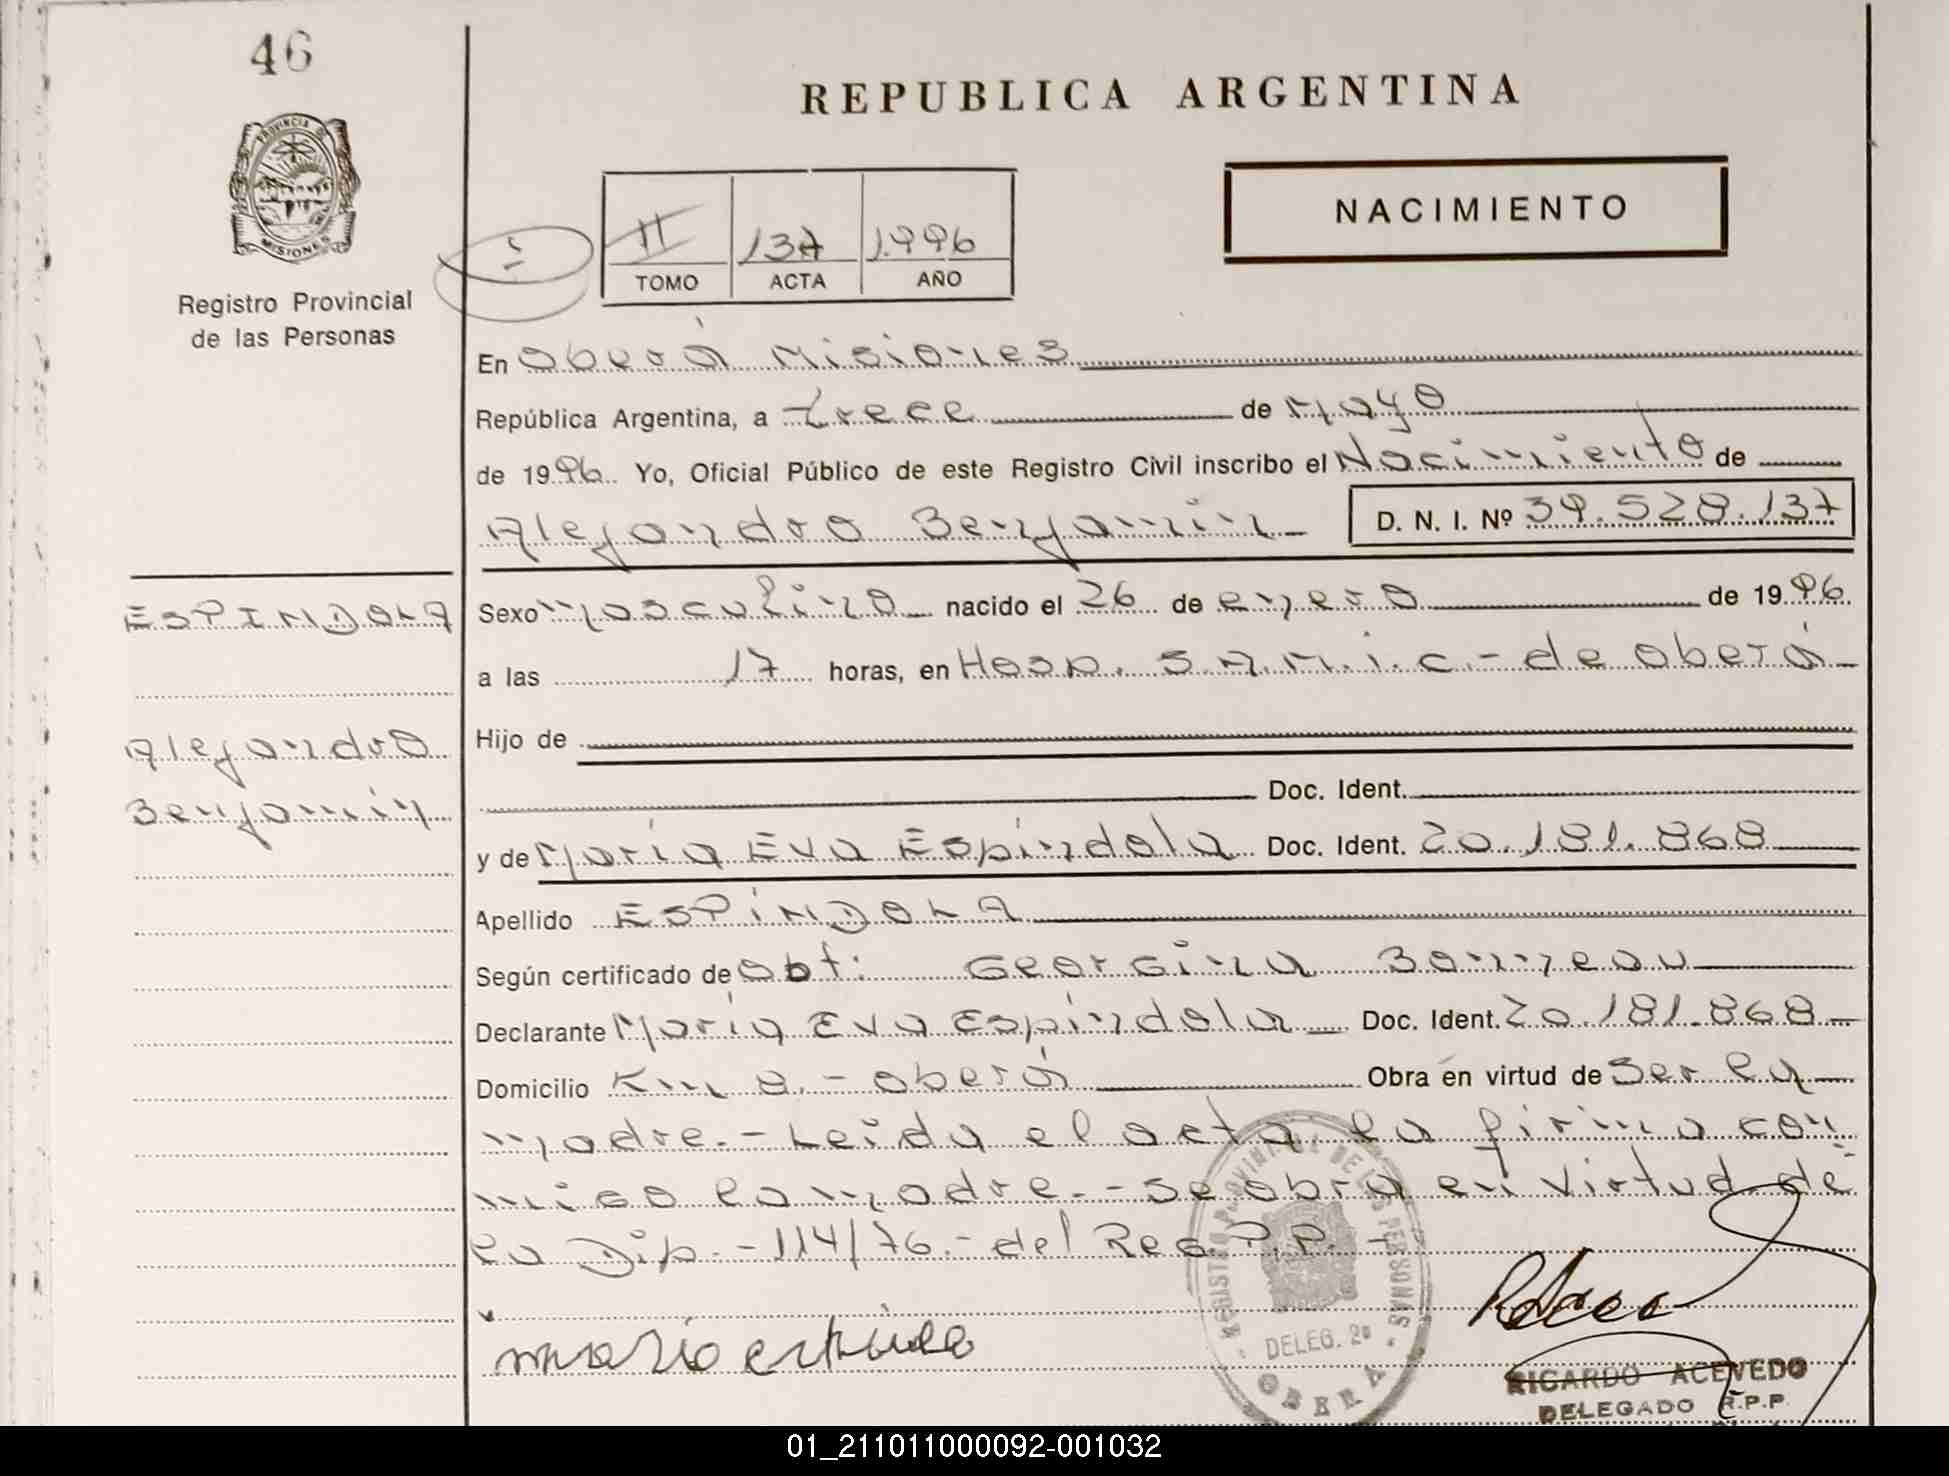 46
REPUBLICA ARGENTINA
PROVINCIA DE
MISIONES
Registro Provincial
de las Personas
II 137 1.996
TOMO ACTA AÑO
NACIMIENTO
En Oberá Misiones
República Argentina, a trece de Mayo
de 1996. Yo, Oficial Público de este Registro Civil inscribo el Nacimiento de
Alejandro Benjamin D. N. I. Nº 39.528.137
ESPINDOLA
Sexo masculino nacido el 26 de enero de 1996.
a las 17 horas, en Hosp. S.A.M.i.c.- de Oberá
Alejandro
Hijo de
Benjamin
Doc. Ident.
y de María Eva Espíndola Doc. Ident. 20.181.868
Apellido ESPíNDOLA
Según certificado de obt: Georgina Bonneau
Declarante María Eva Espíndola Doc. Ident. 20.181.868
Domicilio Km 8.- Oberá Obra en virtud de Ser la
madre.- Leida el acta, la firma con
migo la madre.- Se obra en virtud de
la Dip.- 114/76.- del Reg. P.P.
REGISTRO PROVINCIAL DE LAS PERSONAS
DELEG. 2a
OBERA
RICARDO ACEVEDO
DELEGADO R.P.P.
01_211011000092-001032